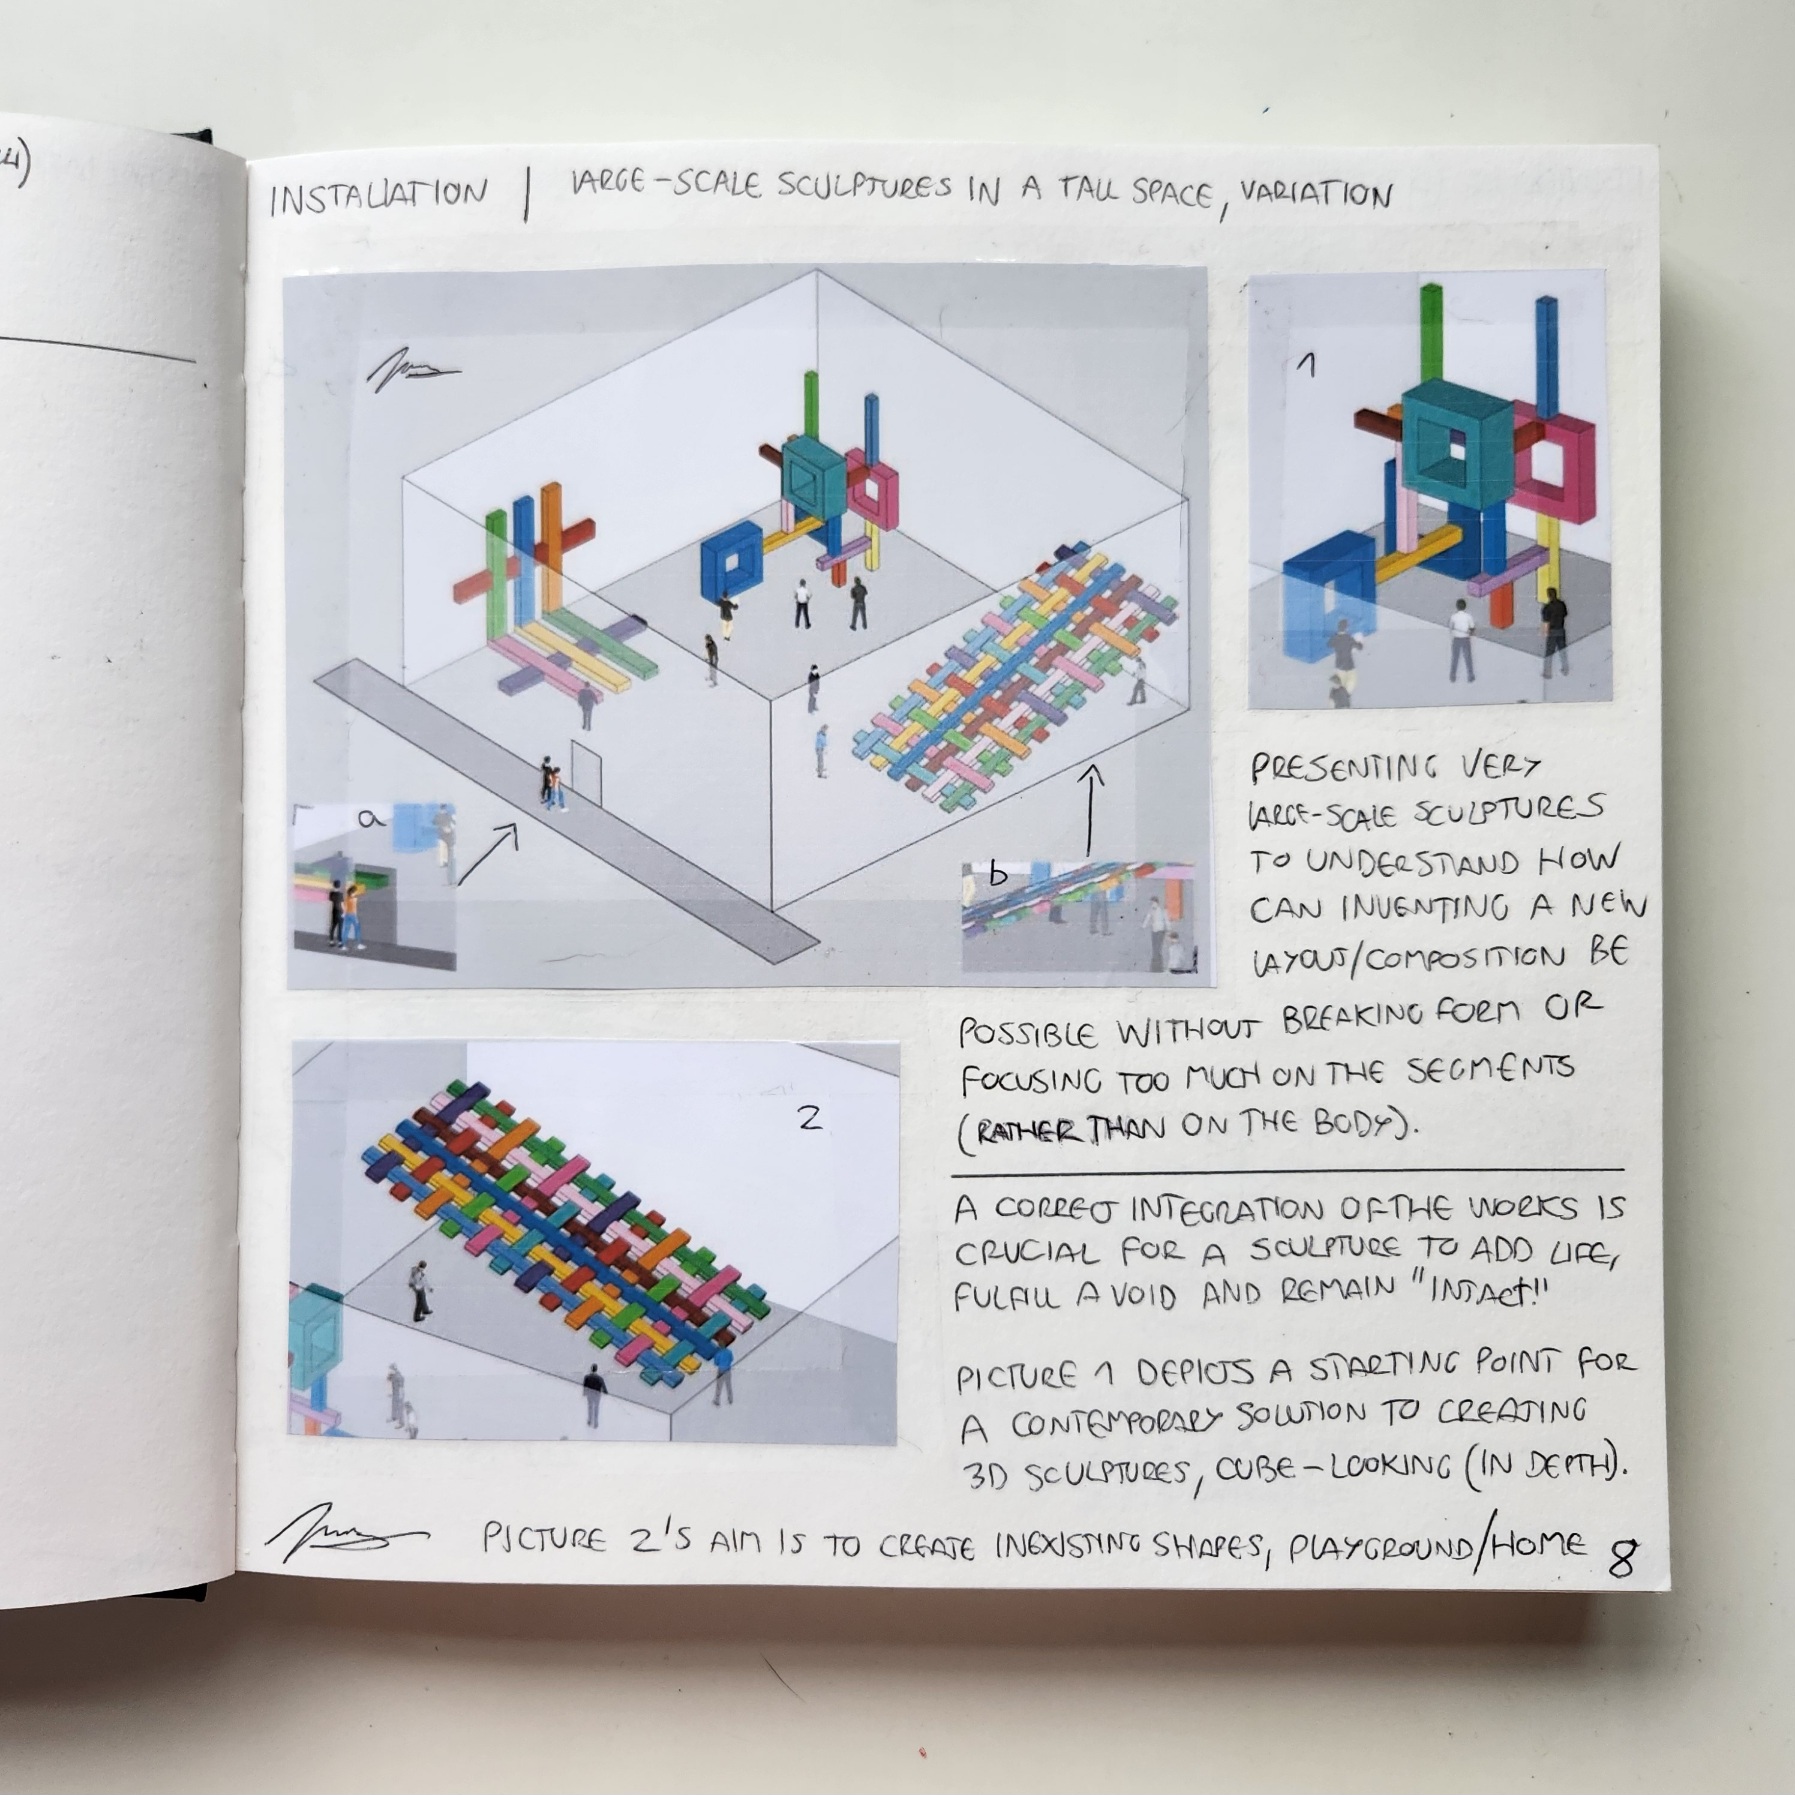 4)
INSTALLATION | LARGE-SCALE SCULPTURES IN A TALL SPACE, VARIATION
1
a
b
2
PRESENTING VERY
LARGE-SCALE SCULPTURES
TO UNDERSTAND HOW
CAN INVENTING A NEW
LAYOUT/COMPOSITION BE
POSSIBLE WITHOUT BREAKING FORM OR
FOCUSING TOO MUCH ON THE SEGMENTS
(RATHER THAN ON THE BODY).
A CORRECT INTEGRATION OF THE WORKS IS
CRUCIAL FOR A SCULPTURE TO ADD LIFE,
FULFILL A VOID AND REMAIN "INTACT!"
PICTURE 1 DEPICTS A STARTING POINT FOR
A CONTEMPORARY SOLUTION TO CREATING
3D SCULPTURES, CUBE-LOOKING (IN DEPTH).
PICTURE 2'S AIM IS TO CREATE INEXISTING SHAPES, PLAYGROUND/HOME 8